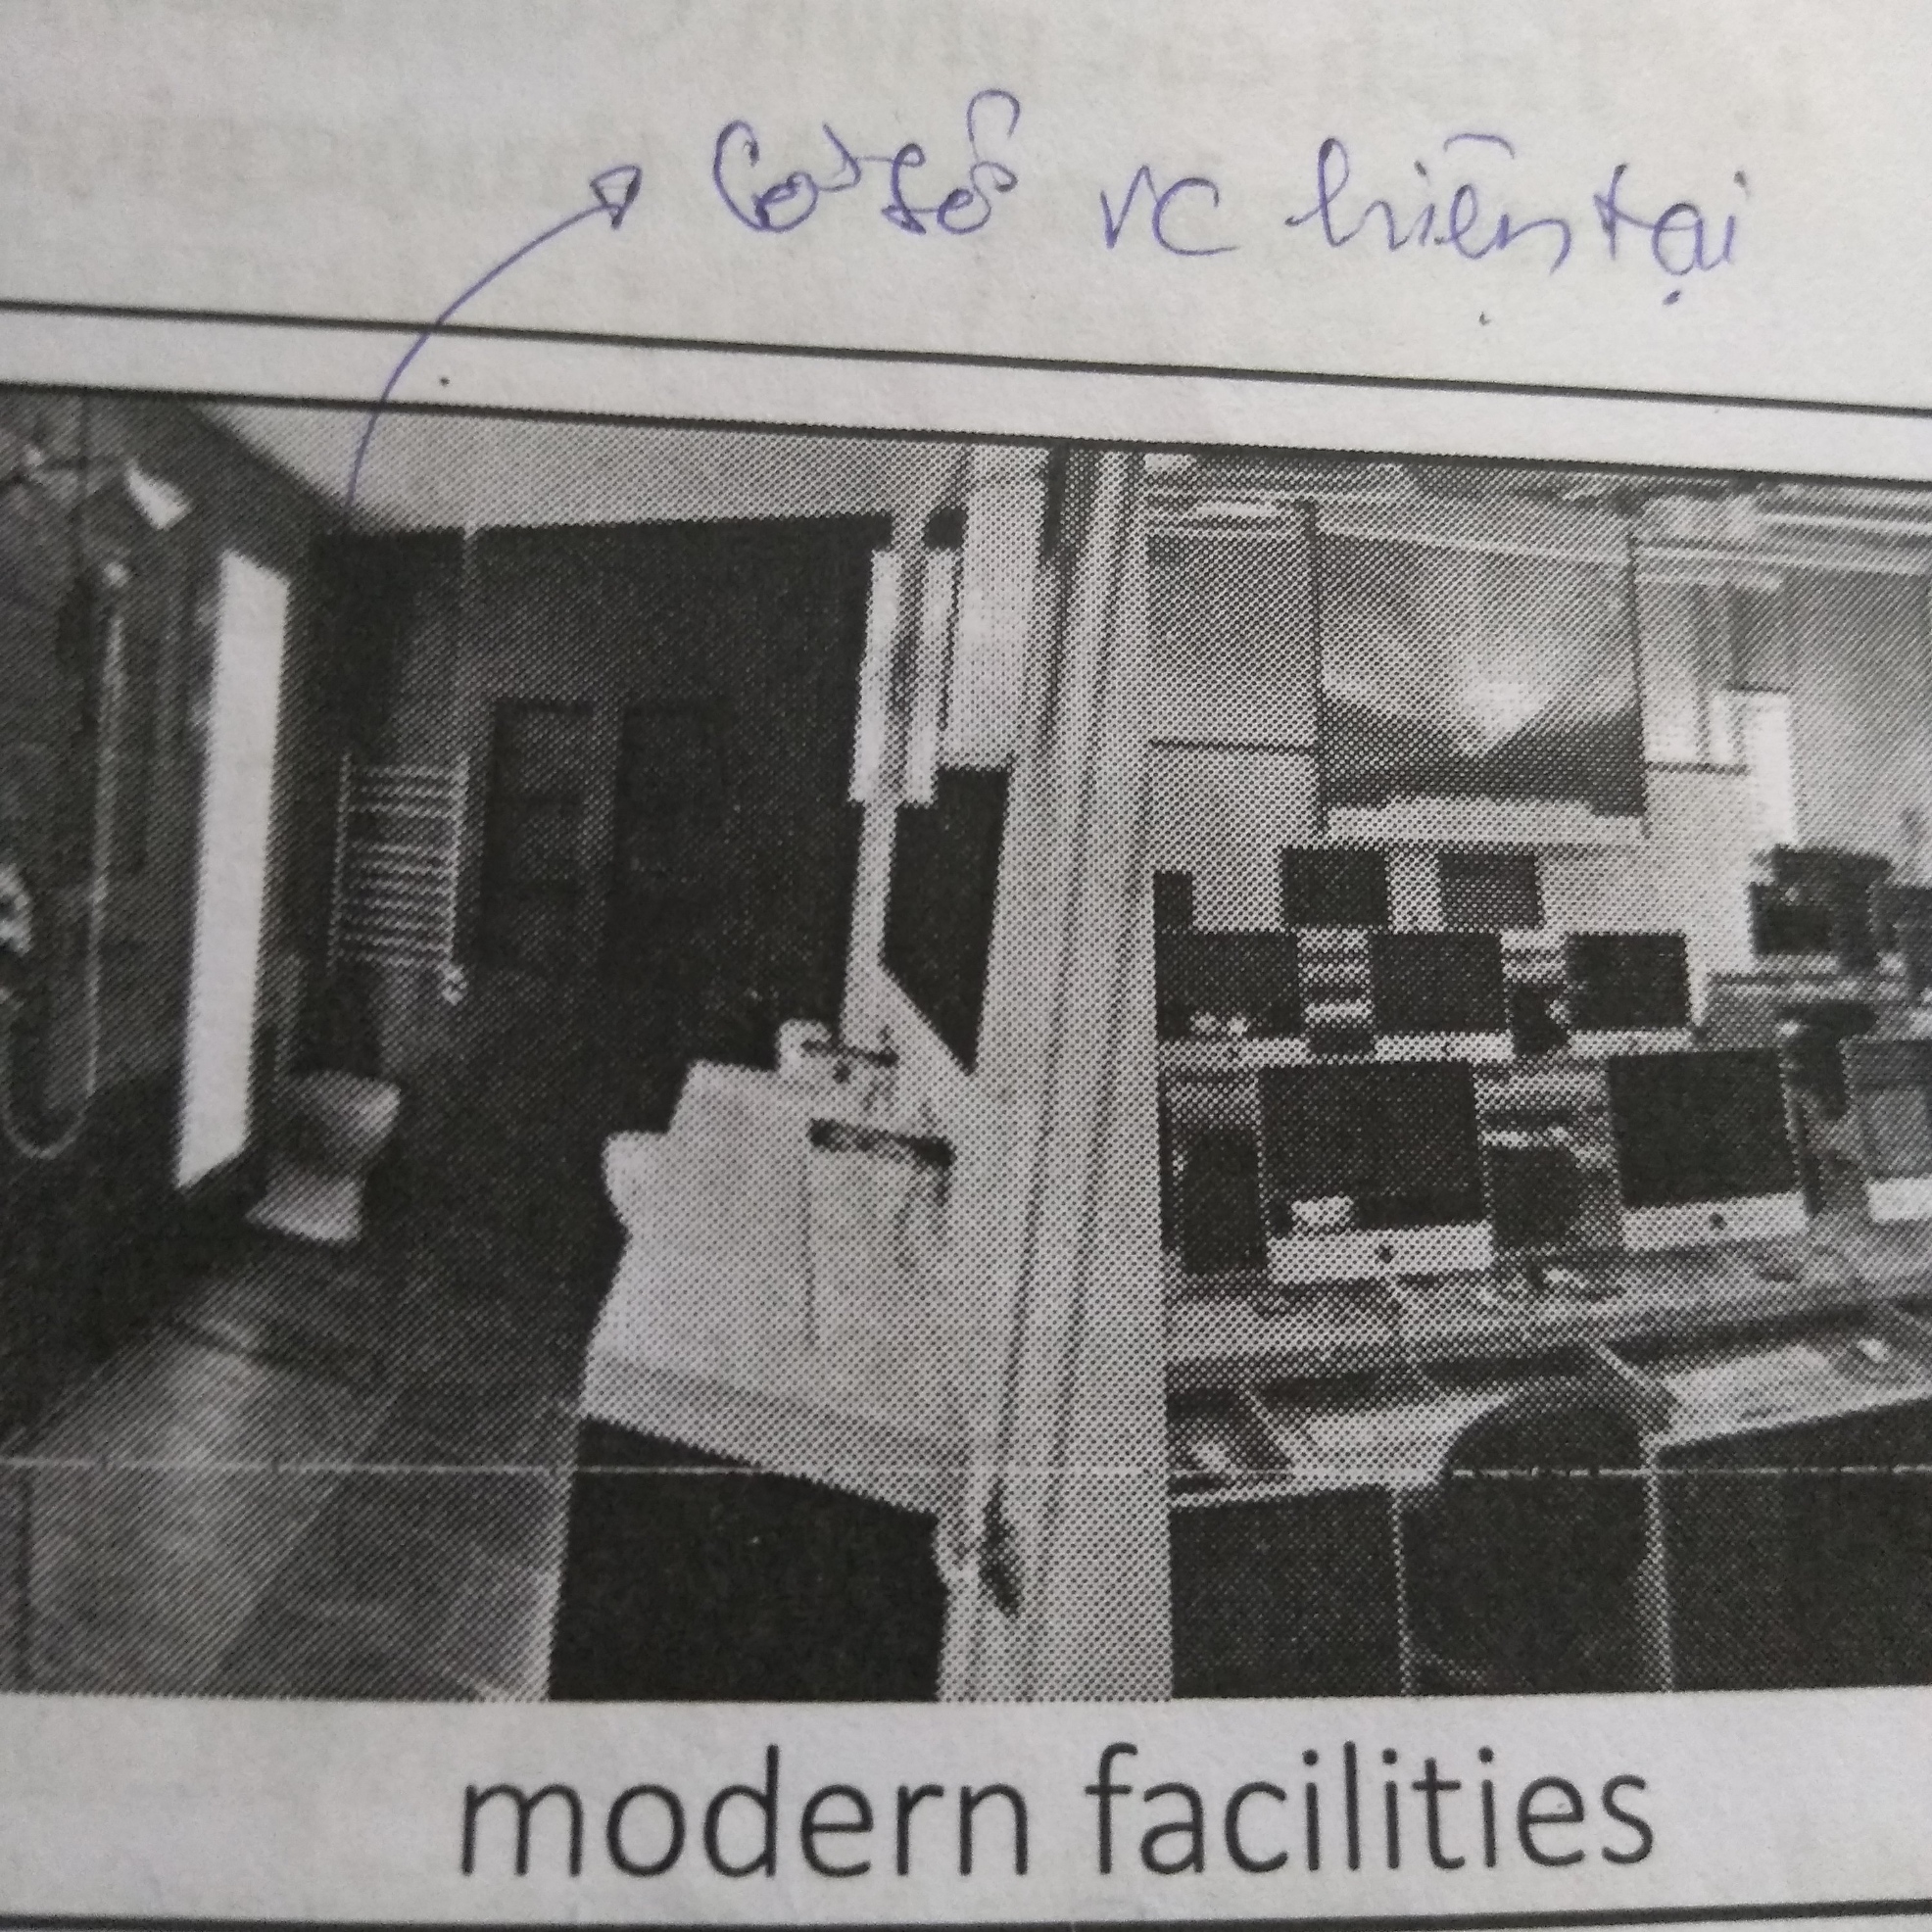 Cơ sở vc hiện tại
modern facilities